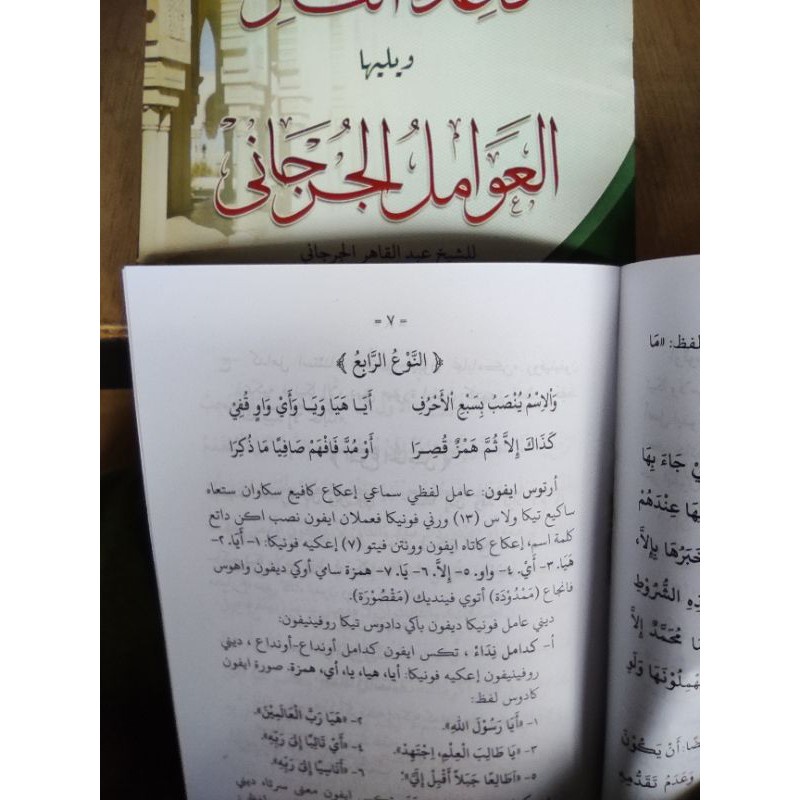 ويليها
العوامل الجرجانى
للشيخ عبد القاهر الجرجاني
= ٧ =
﴿ النَّوْعُ الرَّابِعُ ﴾
وَالْاِسْمُ يُنْصَبُ بِسَبْعِ الْأَحْرُفِ أَيَا هَيَا وَيَا وَأَيْ وَاوٍ قُفِيْ
كَذَاكَ إِلاَّ ثُمَّ هَمْزٌ قُصِرَا أَوْ مُدَّ فَافْهَمْ صَافِيًا مَا ذُكِرَا
أرتوس ايفون: عامل لفظي سماعي إعكاع كافيع سكاران ستعاه
ساكيع تيكا ولاس (١٣) ورني فونيكا فعملان ايفون نصب اكن داتع
كلمة اسم، إعكاع كاتاه ايفون وونتن فيتو (٧) إعكيه فونيكا: ١- أَيَا. ٢-
هَيَا. ٣- أَيْ. ٤- واو. ٥- إِلاَّ. ٦- يَا. ٧- همزة سامي أوكي ديفون واهوس
فانجاع (مَمْدُوْدَة) أتوي فينديك (مَقْصُوْرَة).
ديني عامل فونيكا ديفون باكي دادوس تيكا روفينيفون:
أ- كدامل نِدَاءْ ، تكس ايفون كدامل أونداع-أونداع ، ديني
روفينيفون إعكيه فونيكا: أيا، هيا، يا، أي، همزة. صورة ايفون
كادوس لفظ:
١- «أَيَا رَسُوْلَ اللهِ». ٢- «هَيَا رَبَّ الْعَالَمِيْنَ».
٣- «يَا طَالِبَ الْعِلْمِ، اِجْتَهِدْ». ٤- «أَيْ تَالِيًا إِلَى رَبِّهِ».
٥- «أَطَالِعًا جَبَلاً أَقْبِلْ إِلَيَّ». ٦- «آنَاسِيًا إِلَى رَبِّهِ».
ايفون معنى
لفظ: «مَا
جَاءَ بِهَا
عِنْدَهُمْ
خَبَرُهَا بِإِلاَّ،
الشُّرُوْطِ
مُحَمَّدٌ إِلاَّ
يُهْمِلُوْنَهَا وَلَوْ
أَنْ يَكُوْنَ
وَعَدَمُ تَقَدُّمِهِ